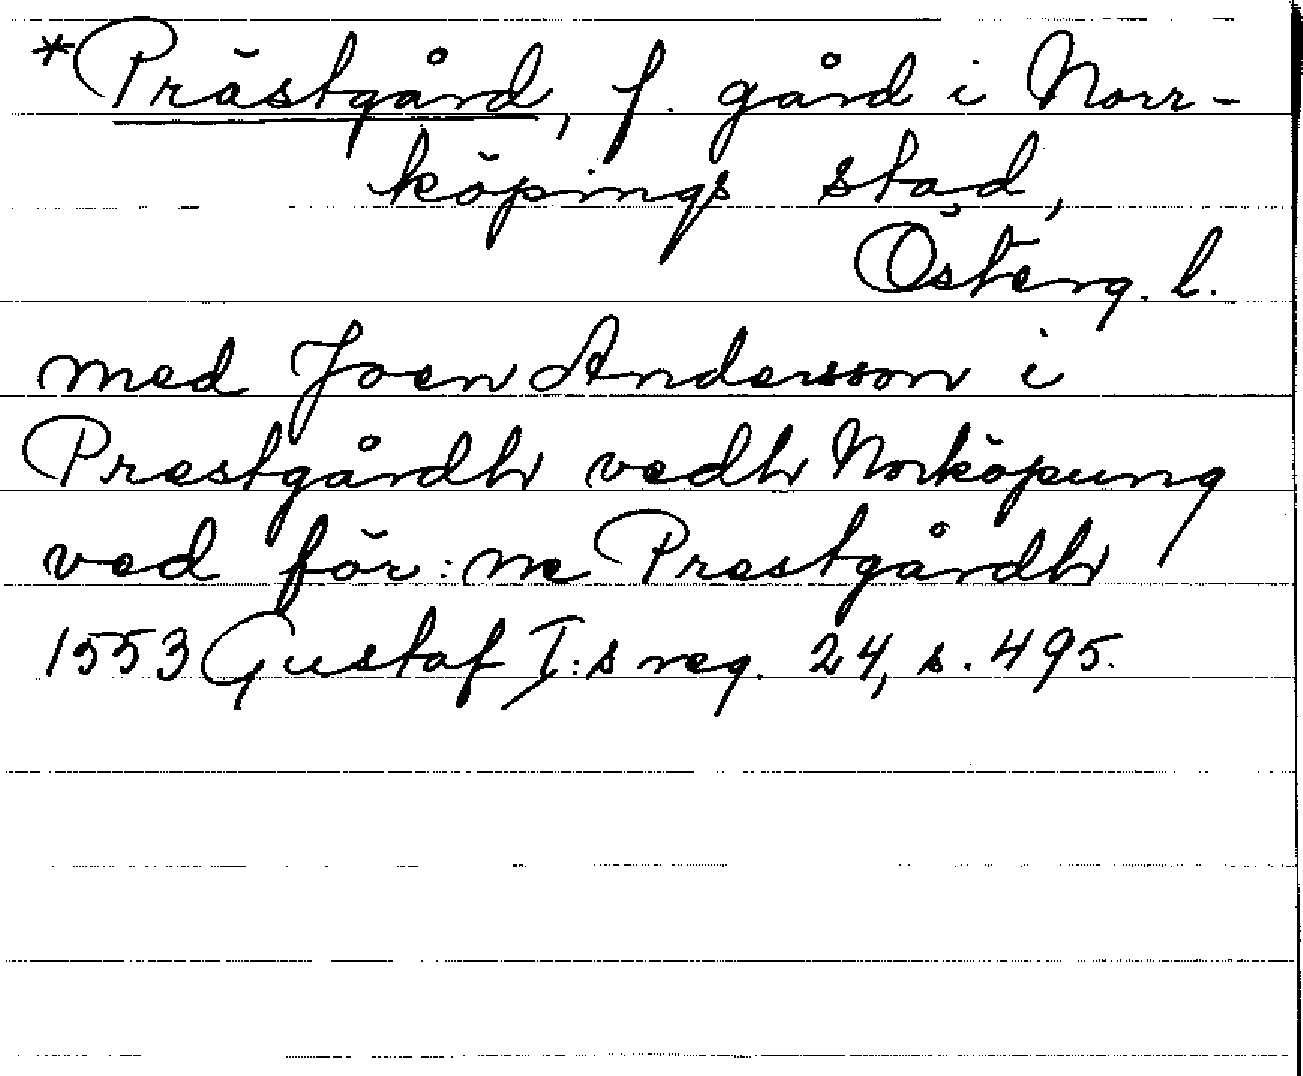 *Prästgård, f. gård i Norr-
köpings stad,
Österg. l.
med Joen Andersson i
Prestgårdh vedh Norköpung
ved för:ne Prestgårdh
1553 Gustaf I:s reg. 24, s. 495.